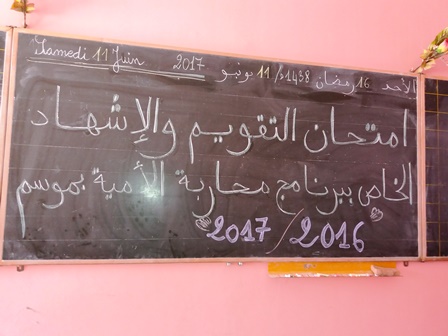 Samedi 11 Juin 2017
الأحد 16 رمضان 1438هـ / 11 يونيو
امتحان التقويم والإشهاد
الخاص ببرنامج محاربة الأمية بموسم
2017/2016